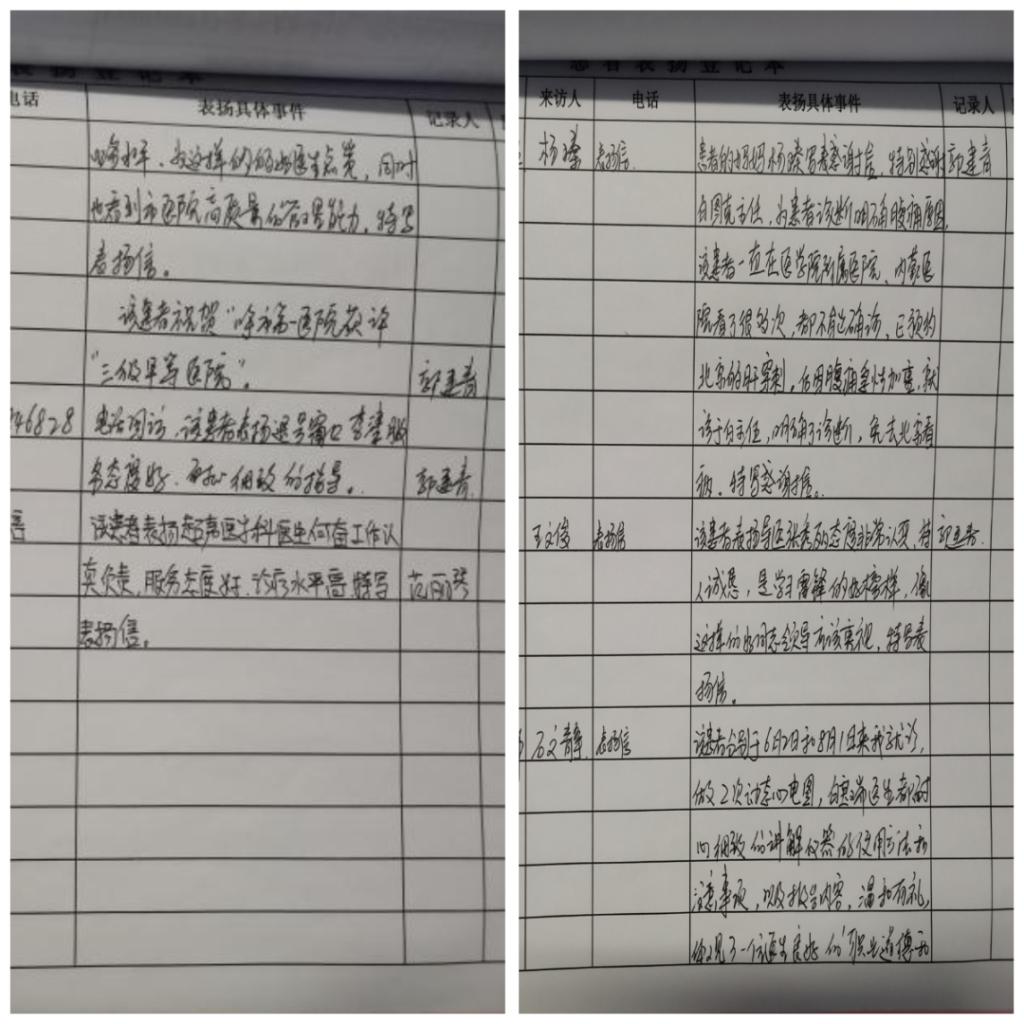 表扬登记本
电话 表扬具体事件 记录人
水平,为这样的好医生点赞,同时
也看到市医院高质量的管理能力,特写
表扬信。
该患者祝贺"市第一医院获评
"三级甲等医院"。 郭建青
46828 电话回访,该患者表扬退号窗口李 服
务态度好,耐心细致的指导。 郭建青
该患者表扬超声医学科医生何奋工作认
真负责,服务态度好,诊疗水平高,特写 范丽琴
表扬信。
患者表扬登记本
来访人 电话 表扬具体事件 记录人
杨 表扬信 患者的妈妈杨 写表感谢信,特别感谢 郭建青
白图克主任,为患者诊断明确腹痛原因,
该患者一直在医学院附属医院、内蒙医
院看了很多次,都不能确诊,已预约
北京的肝穿刺,后因腹痛症状加重,就
诊于白主任,明确了诊断,免去北京看
病。特写感谢信。
王文俊 表扬信 该患者表扬导医张秀 态度非常认真,待 郭建青
人诚恳,是学习雷锋的好榜样,像
这样的好同志领导应该重视,特写表
扬信。
石文静 表扬信 该患者分别于6月2日和8月1日来我就诊,
做2次动态心电图,白 瑞医生都耐
心细致的讲解仪器的使用方法和
注意事项,以及报告内容,温和有礼,
体现了一位医生良好的职业道德和